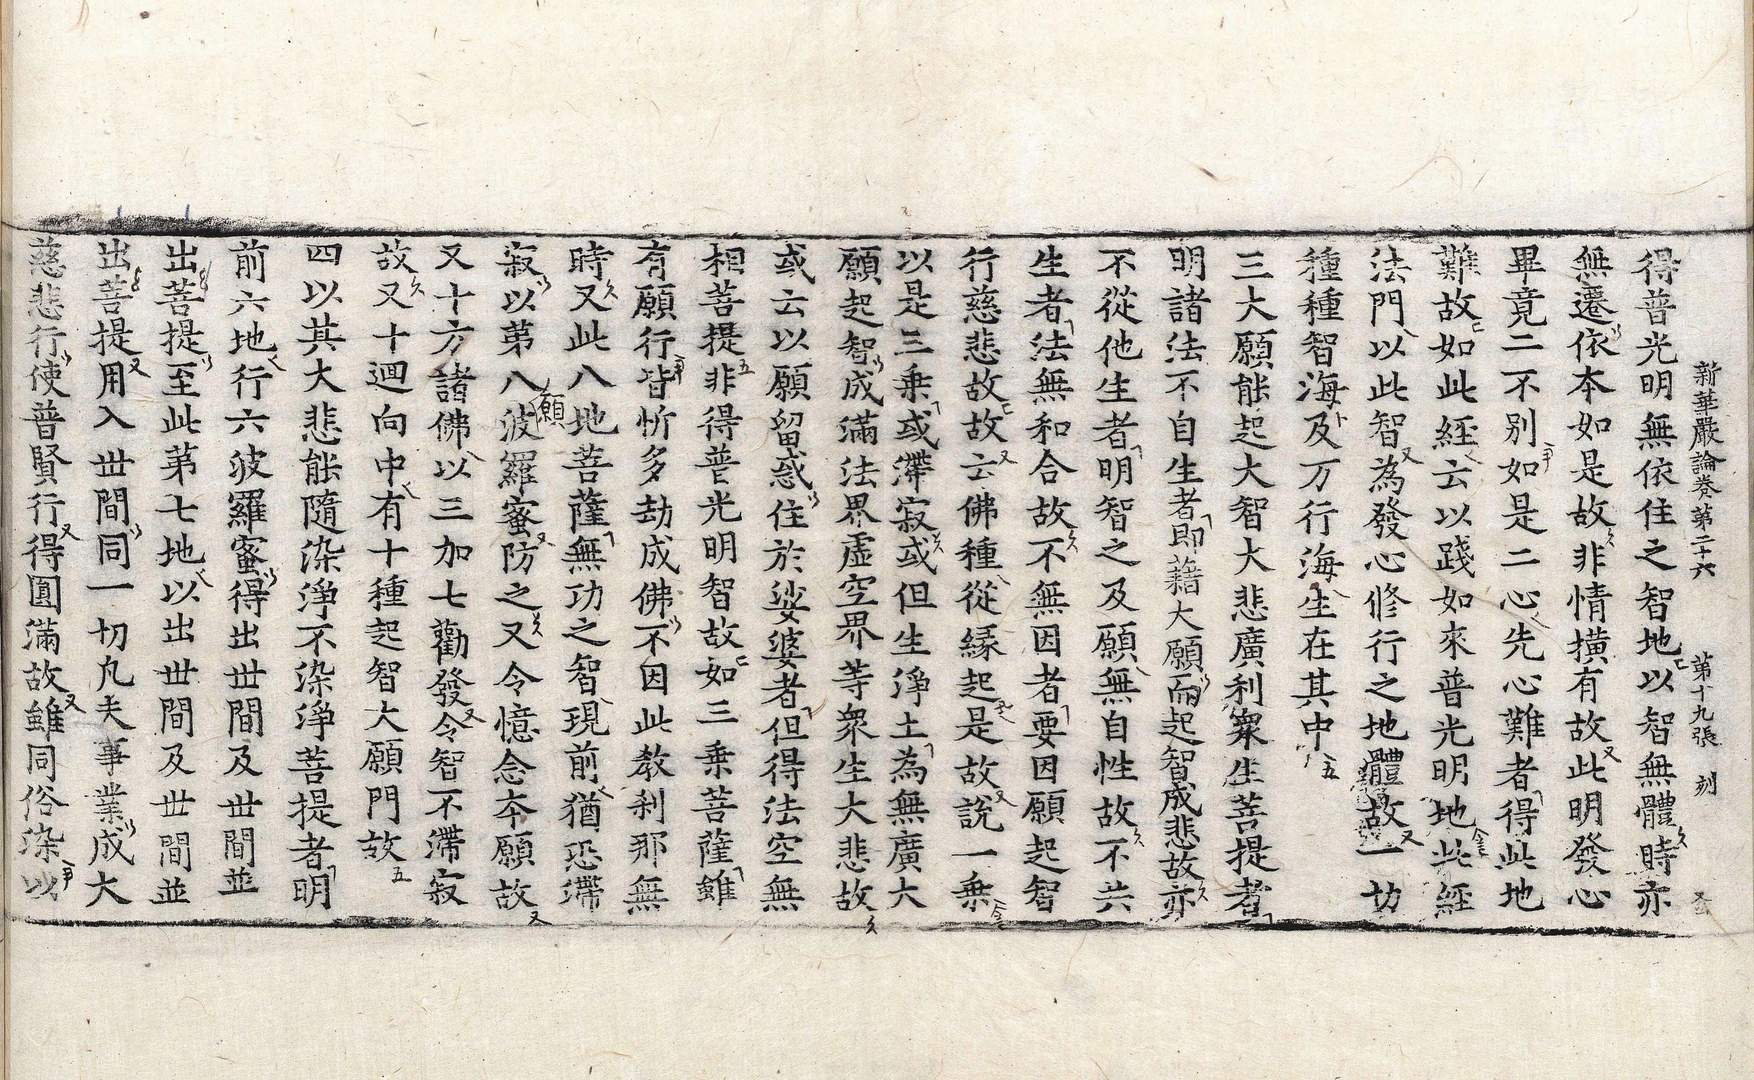 新華嚴論卷第二十六 第十九張 刻
得普光明無依住之智地以智無體時亦
無遷依本如是故非情撗有故此明發心
畢竟二不別如是二心先心難者得此地
難故如此經云以踐如來普光明地此經
法門以此智為發心修行之地體故一切
種種智海及万行海生在其中
三大願能起大智大悲廣利衆生菩提者
明諸法不自生者即藉大願而起智成悲故亦
不從他生者明智之及願無自性故不共
生者法無和合故不無因者要因願起智
行慈悲故故云佛種從緣起是故說一乘
以是三乗或滯寂或但生淨土為無廣大
願起智成滿法界虛空界等衆生大悲故
或云以願留惑住於娑婆者但得法空無
相菩提非得普光明智故如三乗菩薩雖
有願行皆忻多劫成佛不因此教刹那無
時又此八地菩薩無功之智現前猶恐滯
寂以第八波羅蜜防之又令憶念本願故
願
又十方諸佛以三加七勸發令智不滯寂
故又十迴向中有十種起智大願門故
四以其大悲能隨染淨不染淨菩提者明
前六地行六波羅蜜得出世間及世間並
出菩提至此苐七地以出世間及世間並
出菩提用入世間同一切凡夫事業成大
慈悲行使普賢行得圓滿故雖同俗染以